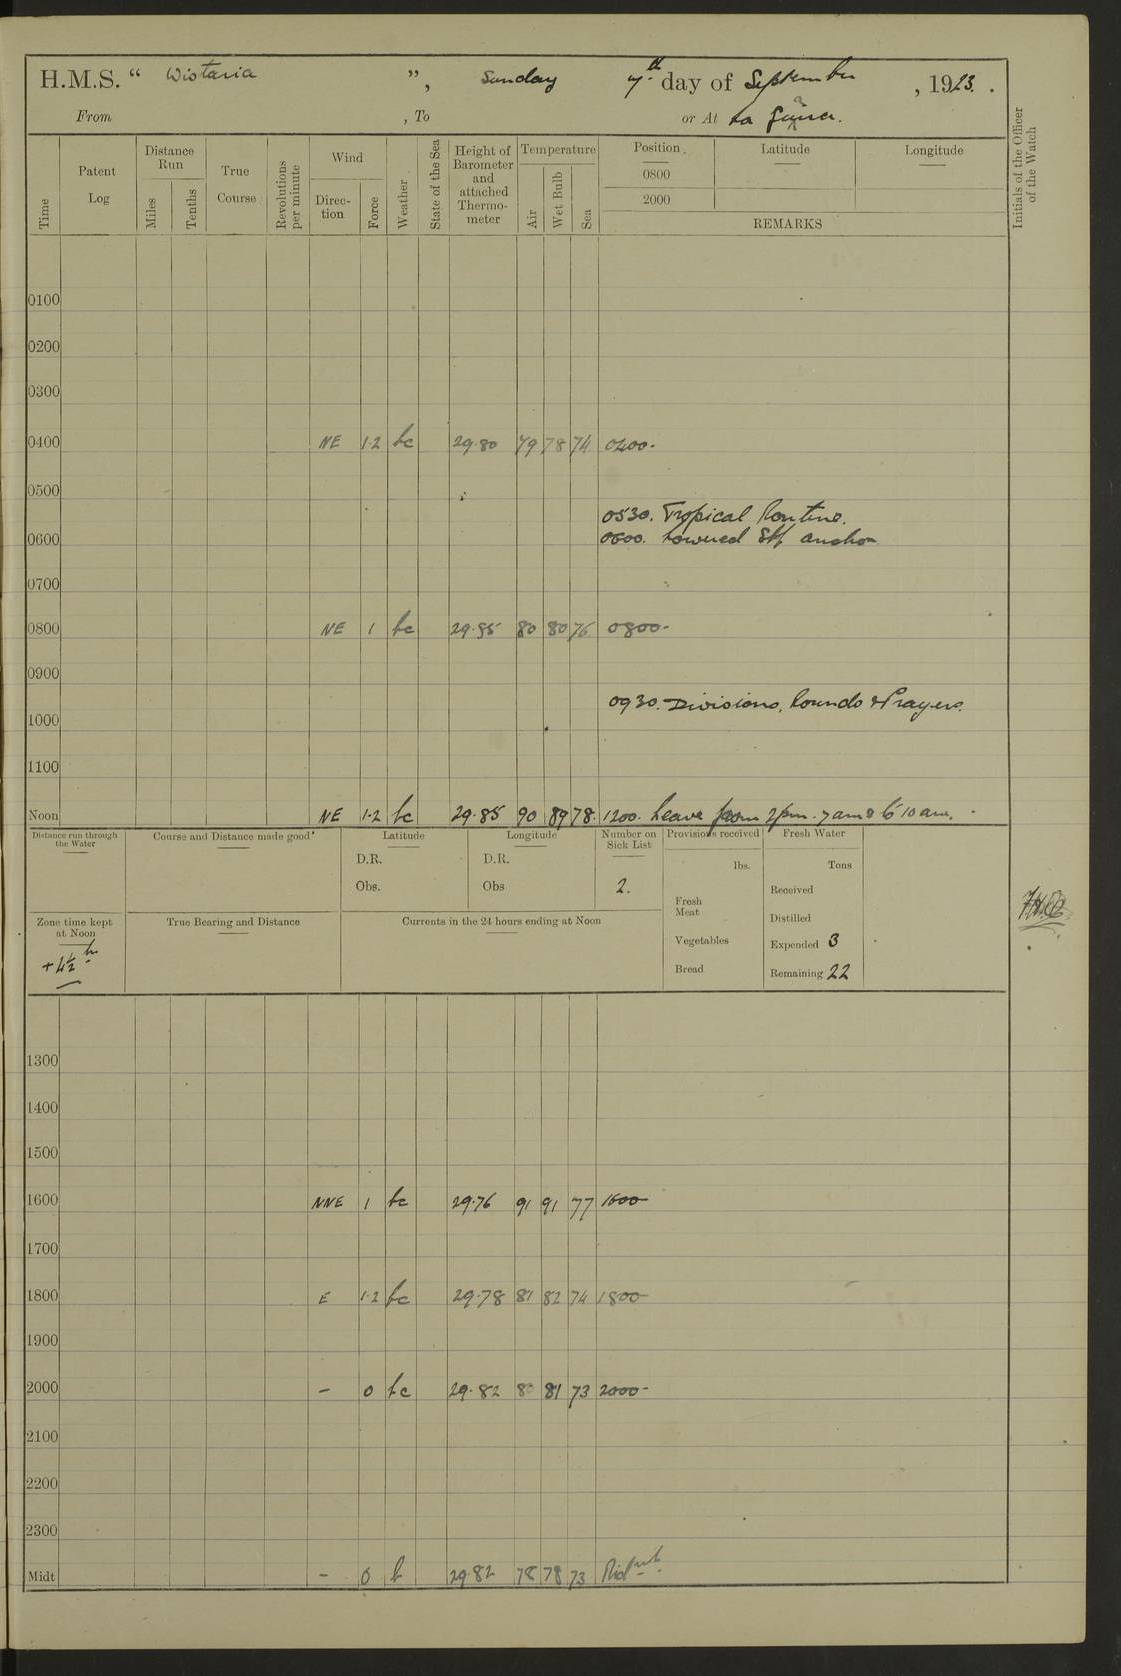 H.M.S. “ Wistaria ”, Sunday day of September, 1923.
From , To or At La Guaira.
Time
Patent Log
Distance Run
Miles
Tenths
True Course
Revolutions per minute
Wind
Direction
Force
Weather
State of the Sea
Height of Barometer and attached Thermometer
Temperature
Air
Wet Bulb
Sea
Position
0800
2000
Latitude
Longitude
REMARKS
Initials of the Officer of the Watch
0100
0200
0300
0400 NE 1·2 bc 29·80 79 78 74 0400-
0500
0530. Tropical Routine.
0600 0600. Lowered anchor
0700
0800 NE 1 bc 29·85 80 80 76 0800-
0900
0930. Divisions, Rounds & Prayers.
1000
1100
Noon NE 1·2 bc 29·85 90 89 78. 1200. Leave from 2pm. 7am & 6 10 am.
Distance run through the Water
Course and Distance made good
Latitude
D.R.
Obs.
Longitude
D.R.
Obs
Number on Sick List
2.
Provisions received
lbs.
Fresh Meat
Vegetables
Bread
Fresh Water
Tons
Received
Distilled
Expended 3
Remaining 22
Zone time kept at Noon
+4½ hr
True Bearing and Distance
Currents in the 24 hours ending at Noon
1300
1400
1500
1600 NNE 1 bc 29·76 91 91 77 1600-
1700
1800 E 1·2 bc 29·78 81 82 74 1800-
1900
2000 - 0 bc 29·82 80 81 73 2000-
2100
2200
2300
Midt - 0 b 29 82 78 78 73